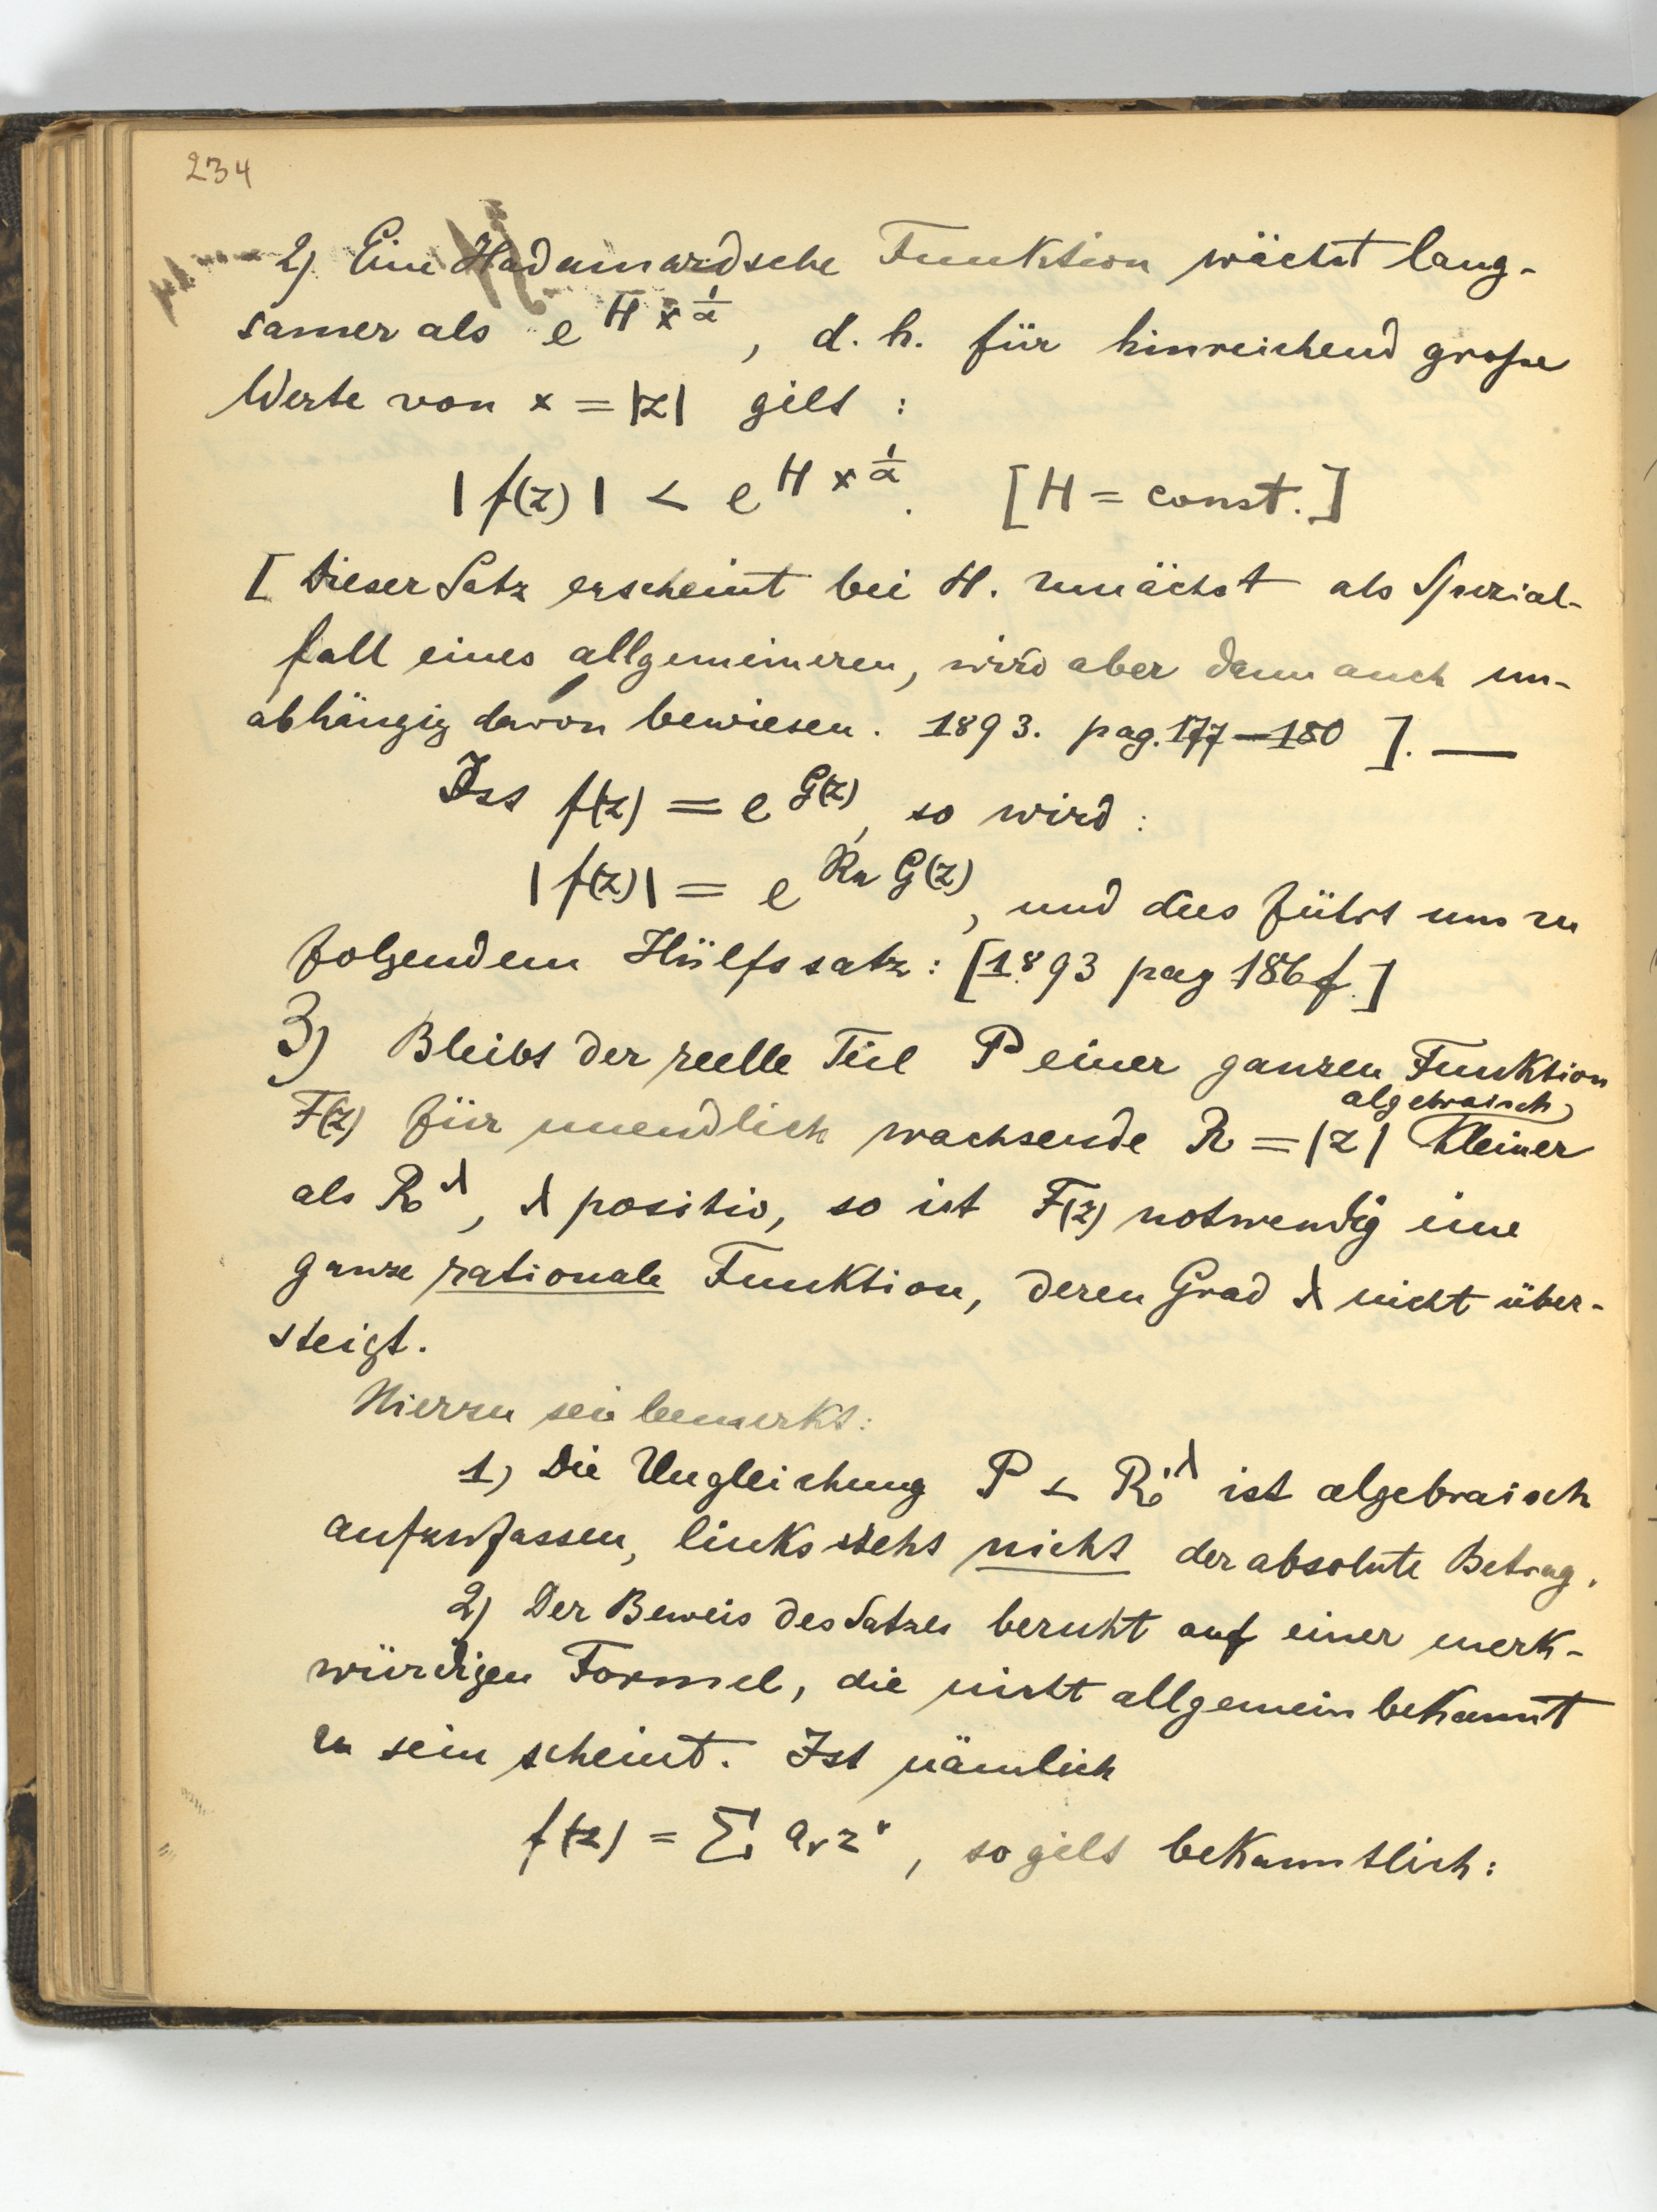 234
2) Eine Hadamardsche Funktion wächst lang-
samer als e^{H x^{1/α}}, d. h. für hinreichend große
Werte von x = |z| gilt :
|f(z)| < e^{H x^{1/α}}. [H = const.]
[Dieser Satz erscheint bei H. zunächst als Spezial-
fall eines allgemeineren, wird aber dann auch un-
abhängig davon bewiesen. 1893. pag. 177—180 ]. —
Ist f(z) = e^{G(z)}, so wird :
|f(z)| = e^{Re G(z)}, und dies führt uns zu
folgendem Hülfssatz : [1893 pag 186 f.]
3) Bleibt der reelle Teil P einer ganzen Funktion
algebraisch
F(z) für unendlich wachsende R = |z| kleiner
als R^λ, λ positiv, so ist F(z) notwendig eine
ganze rationale Funktion, deren Grad λ nicht über-
steigt.
Hierzu sei bemerkt :
1) Die Ungleichung P < R^λ ist algebraisch
aufzufassen, links steht nicht der absolute Betrag.
2) Der Beweis des Satzes beruht auf einer merk-
würdigen Formel, die nicht allgemein bekannt
zu sein scheint. Ist nämlich
f(z) = Σ a_ν z^ν, so gilt bekanntlich :